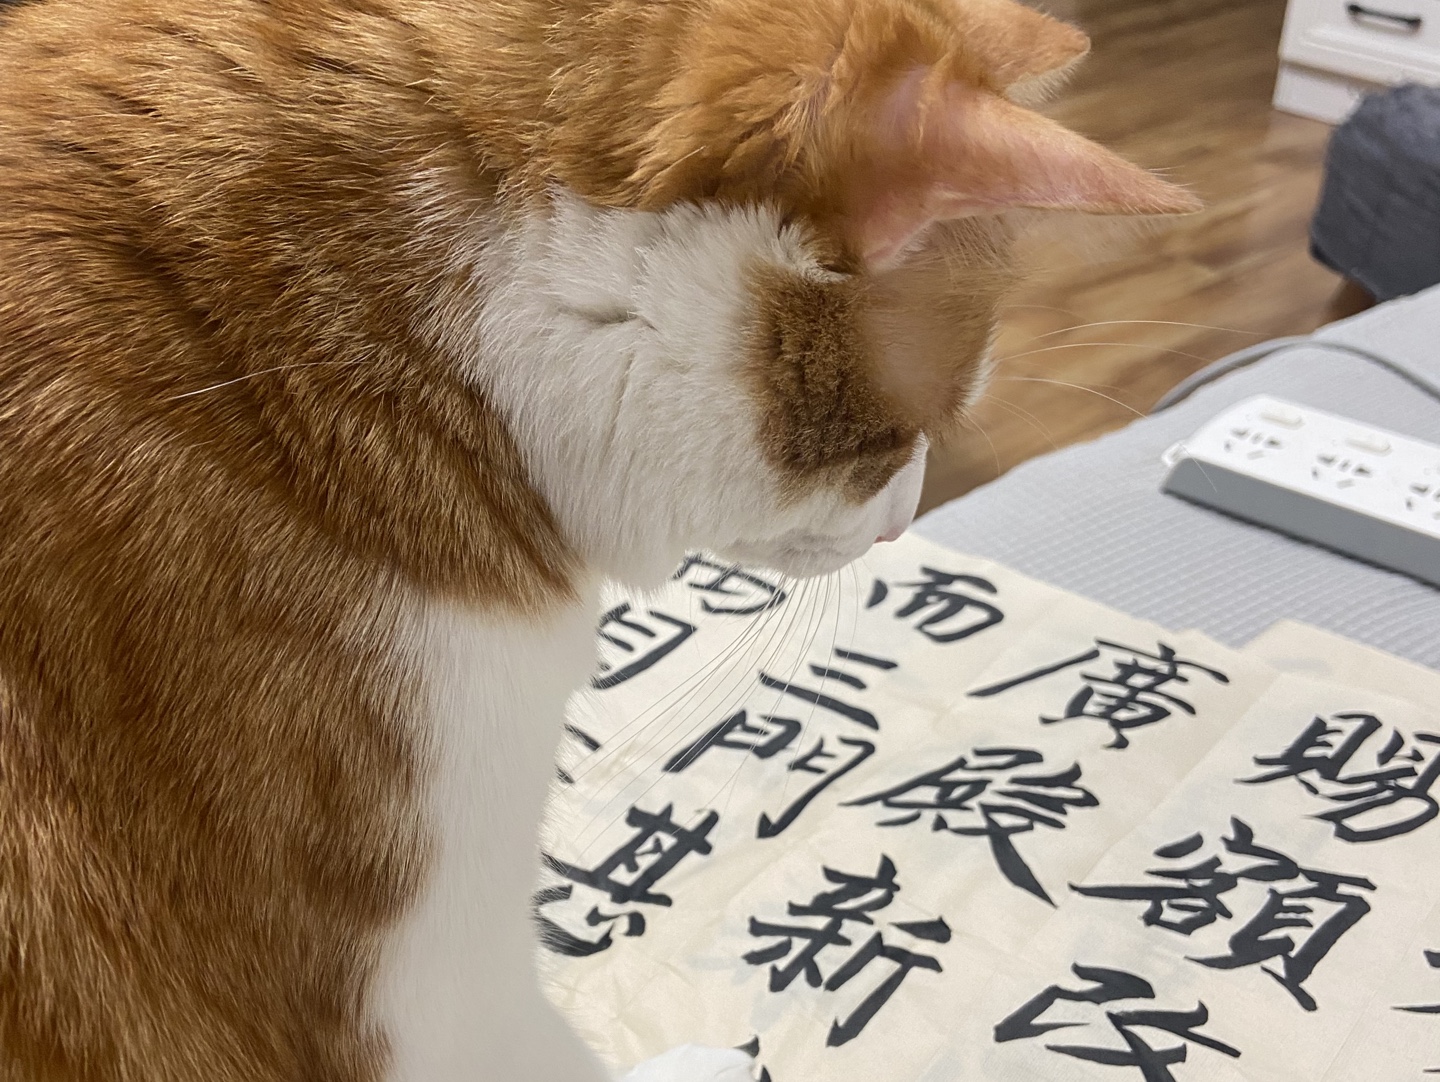 賜額改
廣殿新
而三門甚
目